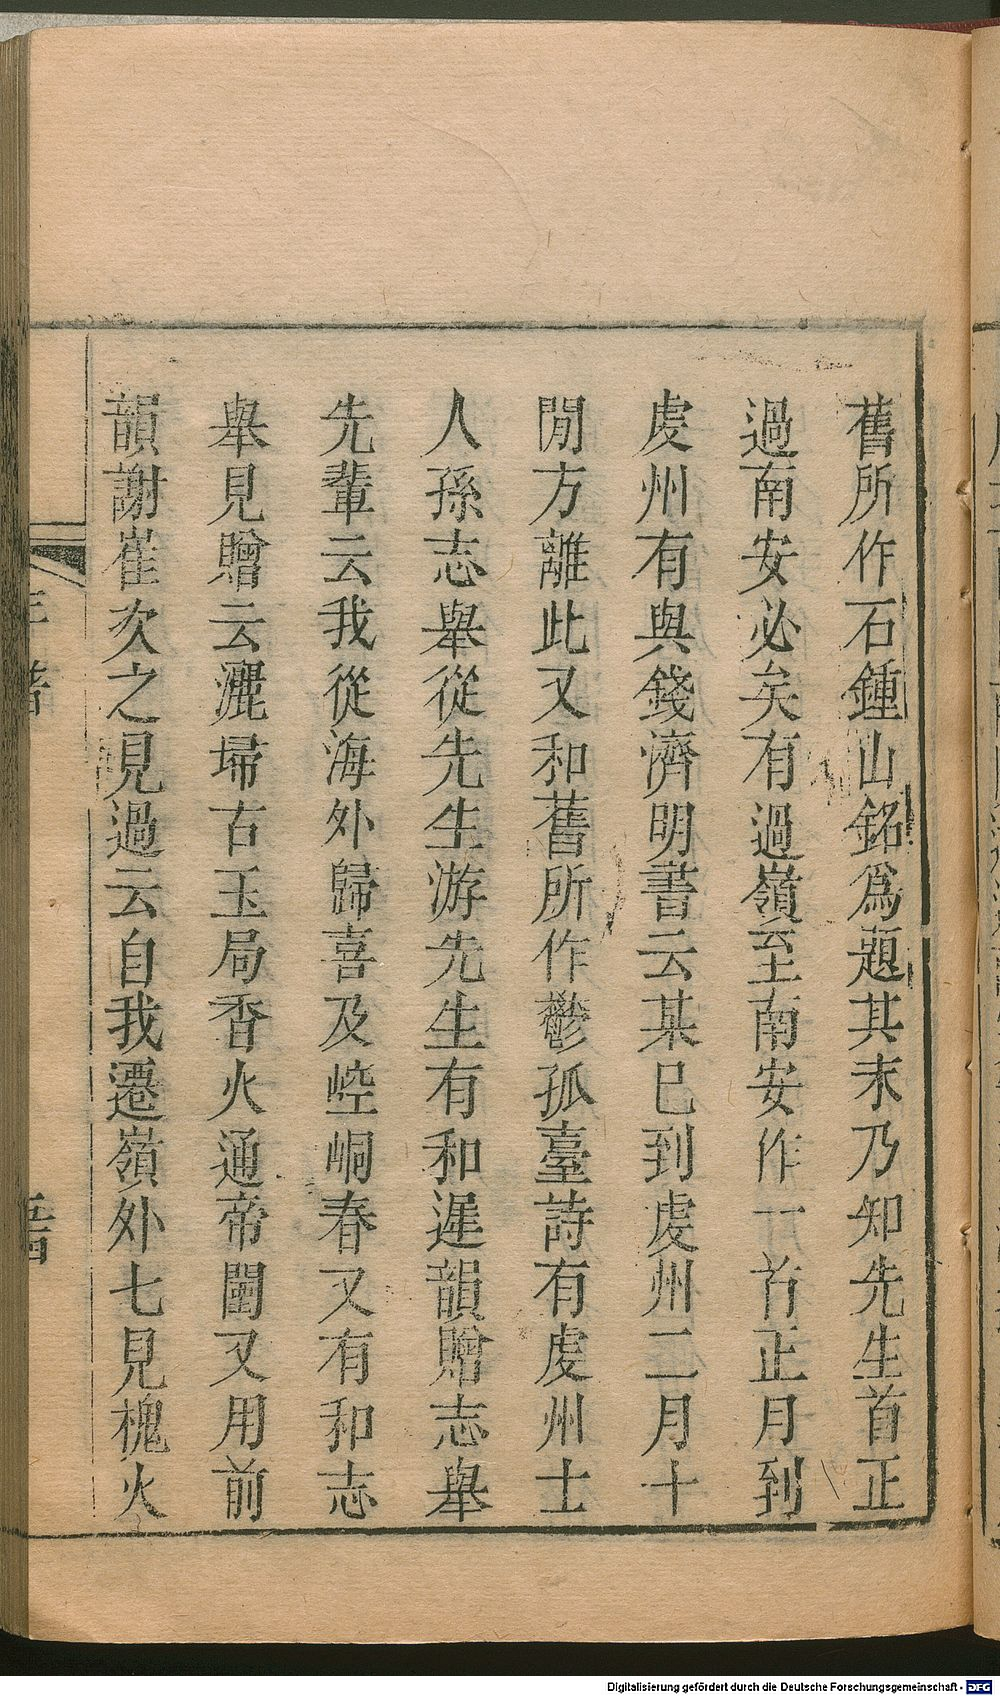 舊所作石鍾山銘爲題其末乃知先生首正
過南安必矣有過嶺至南安作一首正月到
虔州有與錢濟明書云某巳到虔州二月十
閒方離此又和舊所作鬱孤臺詩有虔州士
人孫志舉從先生游先生有和遲韻贈志舉
先輩云我從海外歸喜及崆峒春又有和志
舉見贈云灑埽古玉局香火通帝闉又用前
韻謝崔次之見過云自我遷嶺外七見槐火
年譜
Digitalisierung gefördert durch die Deutsche Forschungsgemeinschaft - DFG